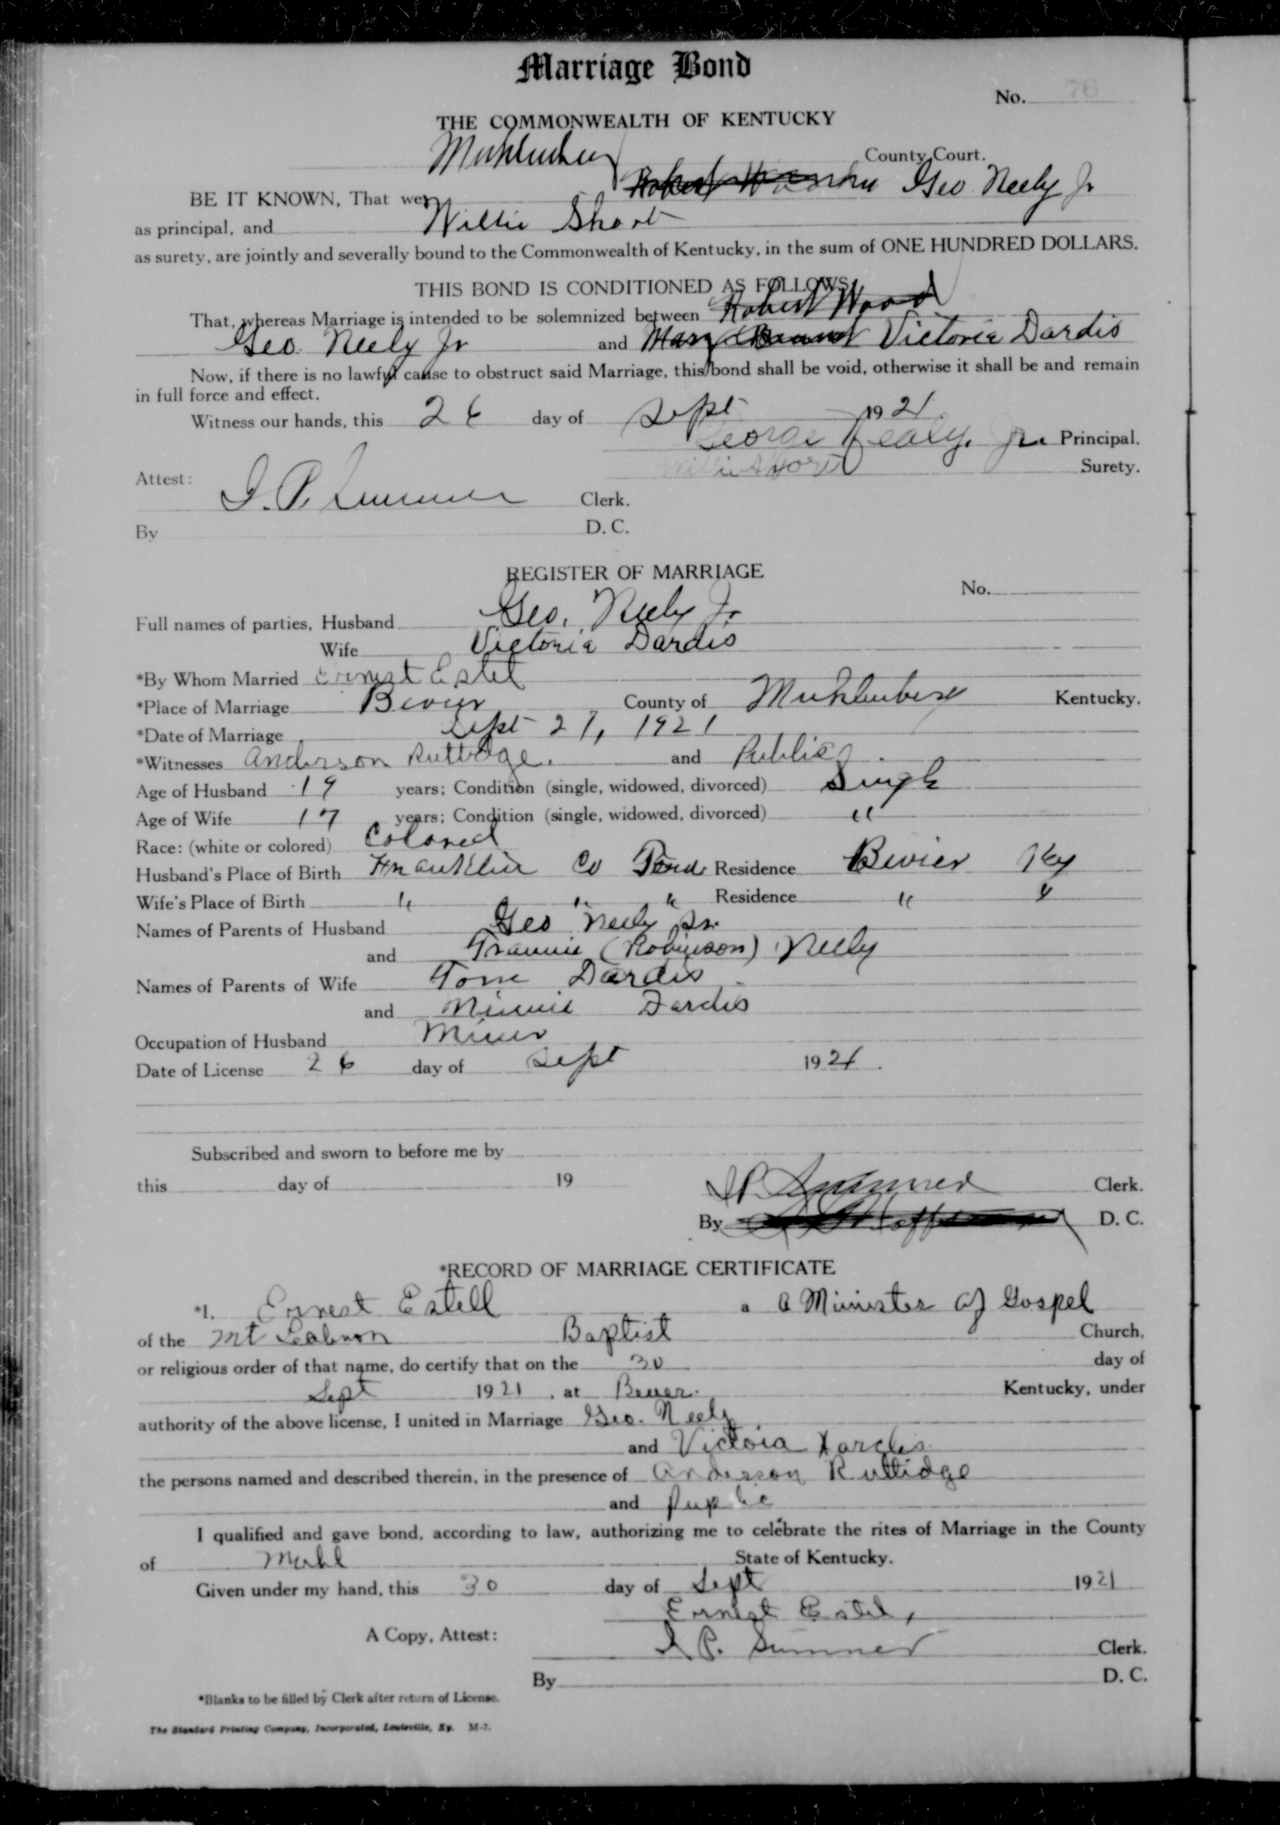 Marriage Bond
No. 76
THE COMMONWEALTH OF KENTUCKY
Muhlenberg County Court.
BE IT KNOWN, That we, Geo Neely Jr
as principal, and Willie Short
as surety, are jointly and severally bound to the Commonwealth of Kentucky, in the sum of ONE HUNDRED DOLLARS.
THIS BOND IS CONDITIONED AS FOLLOWS:
That, whereas Marriage is intended to be solemnized between Robert Wood
Geo Neely Jr and Mary Victoria Dardis
Now, if there is no lawful cause to obstruct said Marriage, this bond shall be void, otherwise it shall be and remain
in full force and effect.
Witness our hands, this 26 day of Sept 1921
George Nealy, Jr. Principal.
Willie Short Surety.
Attest:
I. P. Summer Clerk.
By D. C.
REGISTER OF MARRIAGE
No.
Full names of parties, Husband Geo. Neely Jr
Wife Victoria Dardis
*By Whom Married Ernest Estel
*Place of Marriage Bevier County of Muhlenberg Kentucky.
*Date of Marriage Sept 27, 1921
*Witnesses Anderson Ruttidge. and Public
Age of Husband 19 years; Condition (single, widowed, divorced) Single
Age of Wife 17 years; Condition (single, widowed, divorced) "
Race: (white or colored) Colored
Husband's Place of Birth Franklin Co Tenn Residence Bevier Ky
Wife's Place of Birth " " " Residence " "
Names of Parents of Husband Geo Neely Sr.
and Frannie (Robinson) Neely
Names of Parents of Wife Tom Dardis
and Minnie Dardis
Occupation of Husband Miner
Date of License 26 day of Sept 1921.
Subscribed and sworn to before me by
this day of 19
I.P. Summer Clerk.
By D. C.
*RECORD OF MARRIAGE CERTIFICATE
*I, Ernest Estell a a Minister of Gospel
of the Mt Leabnon Baptist Church,
or religious order of that name, do certify that on the 30 day of
Sept 1921, at Bever. Kentucky, under
authority of the above license, I united in Marriage Geo. Neely
and Victoia Dardis
the persons named and described therein, in the presence of Anderson Ruttidge
and Puplic
I qualified and gave bond, according to law, authorizing me to celebrate the rites of Marriage in the County
of Muhl State of Kentucky.
Given under my hand, this 30 day of Sept 1921
Ernest Estel,
A Copy, Attest: I. P. Summer Clerk.
By D. C.
*Blanks to be filled by Clerk after return of License.
The Standard Printing Company, Incorporated, Louisville, Ky. M-7.